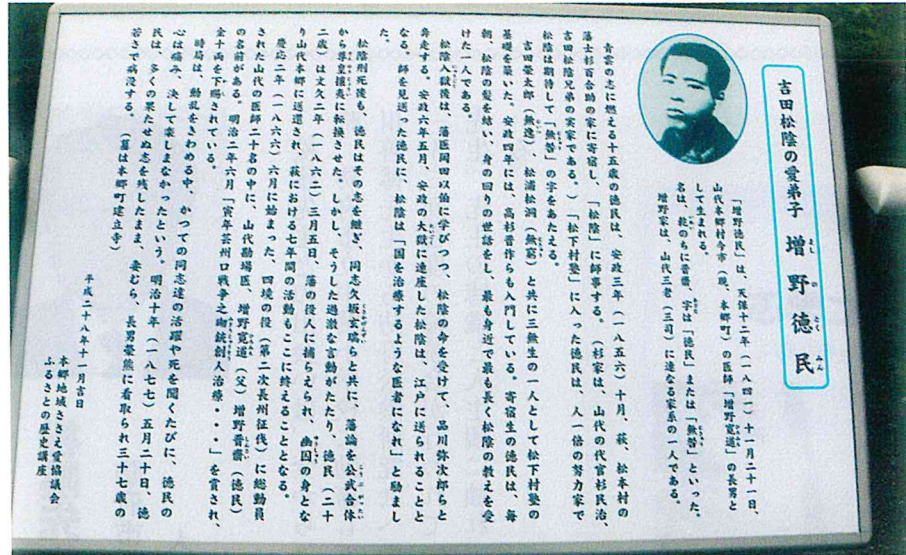 吉田松陰の愛弟子 増野徳民
「増野徳民」は、天保十二年(一八四一)十一月二十一日、
山代本郷村今市(現、本郷町)の医師「増野寛道」の長男と
して生まれる。
名は、乾のちに晋斎、字は「徳民」または「無咎」といった。
増野家は、山代三老(三司)に連なる家系の一人である。
青雲の志に燃える十五歳の徳民は、安政三年(一八五六)十月、萩、松本村の
藩士杉百合助の家に寄宿し、「松陰」に師事する。(杉家は、山代の代官杉民治、
吉田松陰兄弟の実家である。)「松下村塾」に入った徳民は、人一倍の努力家で
松陰は期待して「無咎」の字をあたえる。
吉田栄太郎(無逸)、松浦松洞(無窮)と共に三無生の一人として松下村塾の
基礎を築いた。安政四年には、高杉晋作らも入門している。寄宿生の徳民は、毎
朝、松陰の髪を結い、身の回りの世話をし、最も身近で最も長く松陰の教えを受
けた一人である。
松陰入獄後は、藩医岡田以伯に学びつつ、松陰の命を受けて、品川弥次郎らと
奔走する。安政六年五月、安政の大獄に連座した松陰は、江戸に送られることと
なる。師を見送った徳民に、松陰は「国を治療するような医者になれ」と励まし
た。
松陰刑死後も、徳民はその志を継ぎ、同志久坂玄瑞らと共に、藩論を公武合体
から尊皇攘夷に転換させた。しかし、そうした過激な言動がたたり、徳民(二十
二歳)は文久二年(一八六二)三月五日、藩の役人に捕らえられ、幽囚の身とな
り山代本郷に送還され、萩における七年間の活動もここに終えることとなる。
慶応二年(一八六六)六月に始まった、四境の役(第二次長州征伐)に総動員
された山代の医師二十名の中に、山代勘場医、増野寛道(父)増野晋斎(徳民)
の名前がある。明治二年六月「寅年芸州口戦争之砌銃創人治療・・・」を賞され、
金十両を下賜されている。
時局は、動乱をきわめる中、かつての同志達の活躍や死を聞くたびに、徳民の
心は痛み、決して楽しまなかったという。明治十年(一八七七)五月二十日、徳
民は、多くの果たせぬ志を残したまま、妻むら、長男豪熊に看取られ三十七歳の
若さで病没する。(墓は本郷町建立寺)
平成二十八年十一月吉日
本郷地域ささえ愛協議会
ふるさとの歴史講座